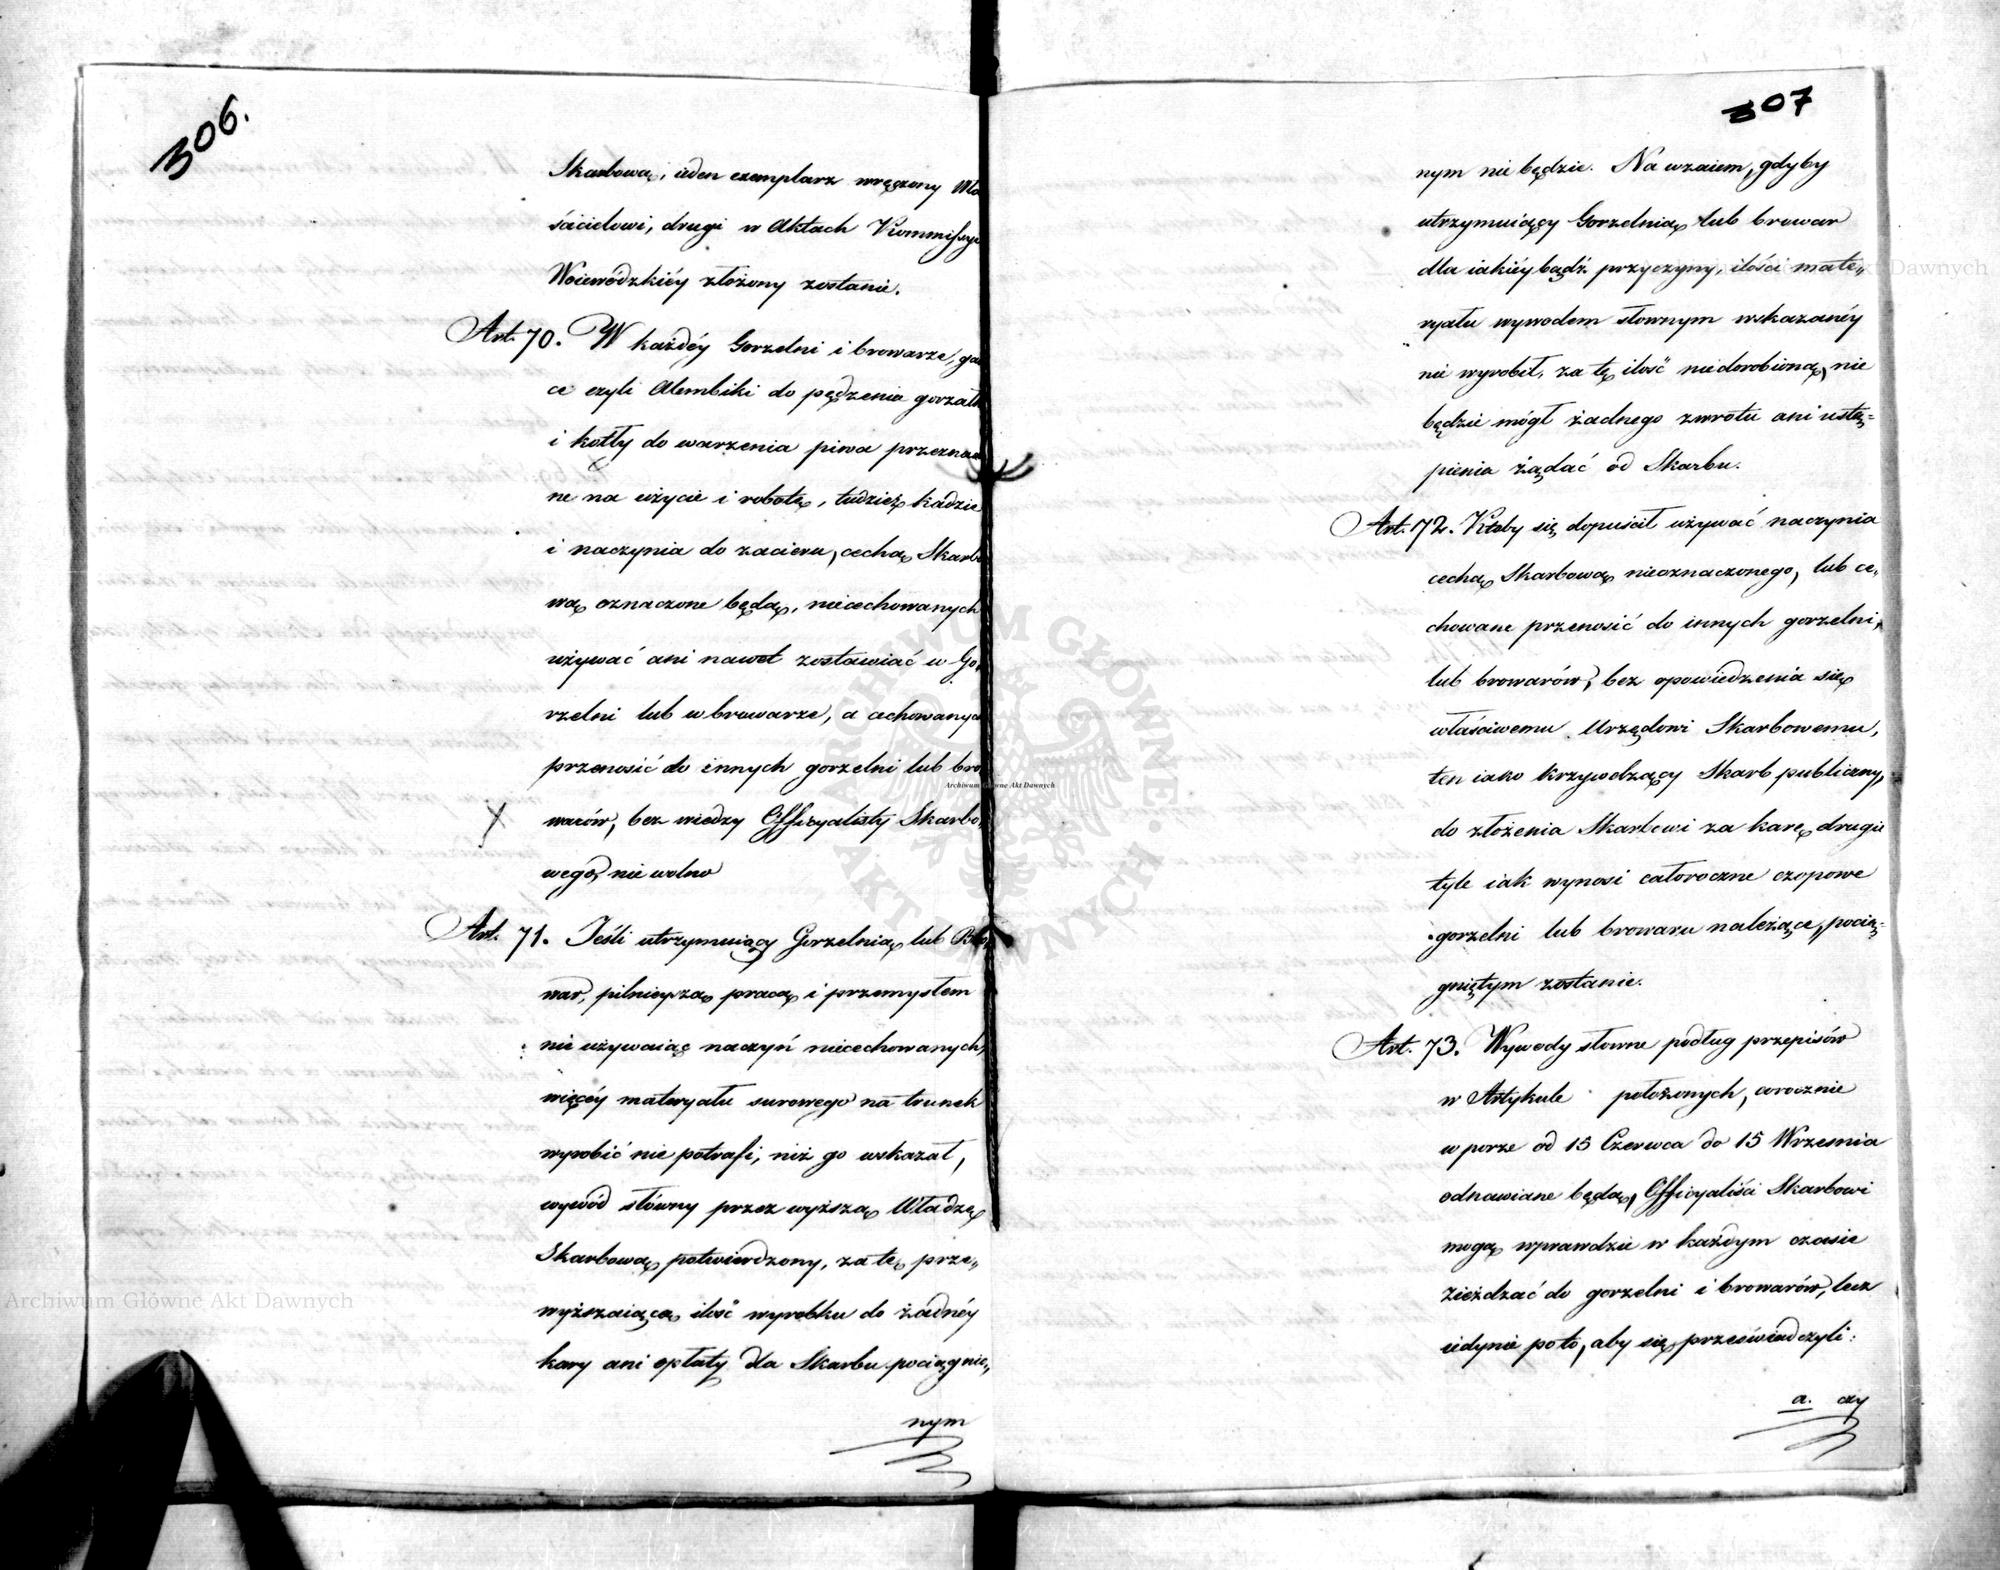 306.
Skarbową, ieden exemplarz wręczony Wła
ścicielowi, drugi w Aktach Kommissyi
Woiewódzkiéy złożony zostanie.
Art. 70. W każdéy Gorzelni i browarze, gar
ce czyli Alembiki do pędzenia gorzałk
i kotły do warzenia piwa przeznac
ne na użycie i robotę, tudzież kadzie
i naczynia do zacieru, cechą Skarbo
wą oznaczone będą, niecechowanych
używać ani nawet zostawiać w Go,
rzelni lub w browarze, a cechowanych
przenosić do innych gorzelni lub bro
warów, bez wiedzy Officyalisty Skarbo,
wego, nie wolno
Art. 71. Jeśli utrzymuiący Gorzelnią lub Bro
war, pilnieyszą pracą i przemysłem
nie używaiąc naczyń niecechowanych,
więcéy materyału surowego na trunek
wyrobić nie potrafi, niż go wskazał,
wywód słówny przez wyższą Władzę
Skarbową potwierdzony, za tę prze„
wyższaiącą ilość wyrobku do żadnéy
kary ani opłaty dla Skarbu pociągnio„
nym
307
nym nie będzie. Nawzaiem, gdyby
utrzymuiący Gorzelnią lub browar
dla iakiéybądź przyczyny, ilości mate„
ryału wywodem słownym wskazanéy
nie wyrobił, za tę ilość niedorobioną, nie
będzie mógł żadnego zwrotu ani ustą=
pienia żądać od Skarbu.
Art. 72. Ktoby się dopuścił używać naczynia
cechą Skarbową nieoznaczonego, lub ce„
chowane przenosić do innych gorzelni,
lub browarów, bez opowiedzenia się
właściwemu Urzędowi Skarbowemu,
ten iako krzywdzący Skarb publiczny,
do złożenia Skarbowi za karę drugie
tyle iak wynosi całoroczne czopowe
gorzelni lub browaru należące, pocią=
gniętym zostanie.
Art. 73. Wywody słowne podług przepisów
w Artykule położonych, corocznie
w porze od 15 Czerwca do 15 Września
odnawiane będą, Officyaliści Skarbowi
mogą wprawdzie w każdym czasie
zieżdzać do gorzelni i browarów, lecz
iedynie poto, aby się przeświadczyli:
a. czy
Archiwum Główne Akt Dawnych
Archiwum Główne Akt Dawnych
Akt Dawnych
ARCHIWUM GŁÓWNE AKT DAWNYCH